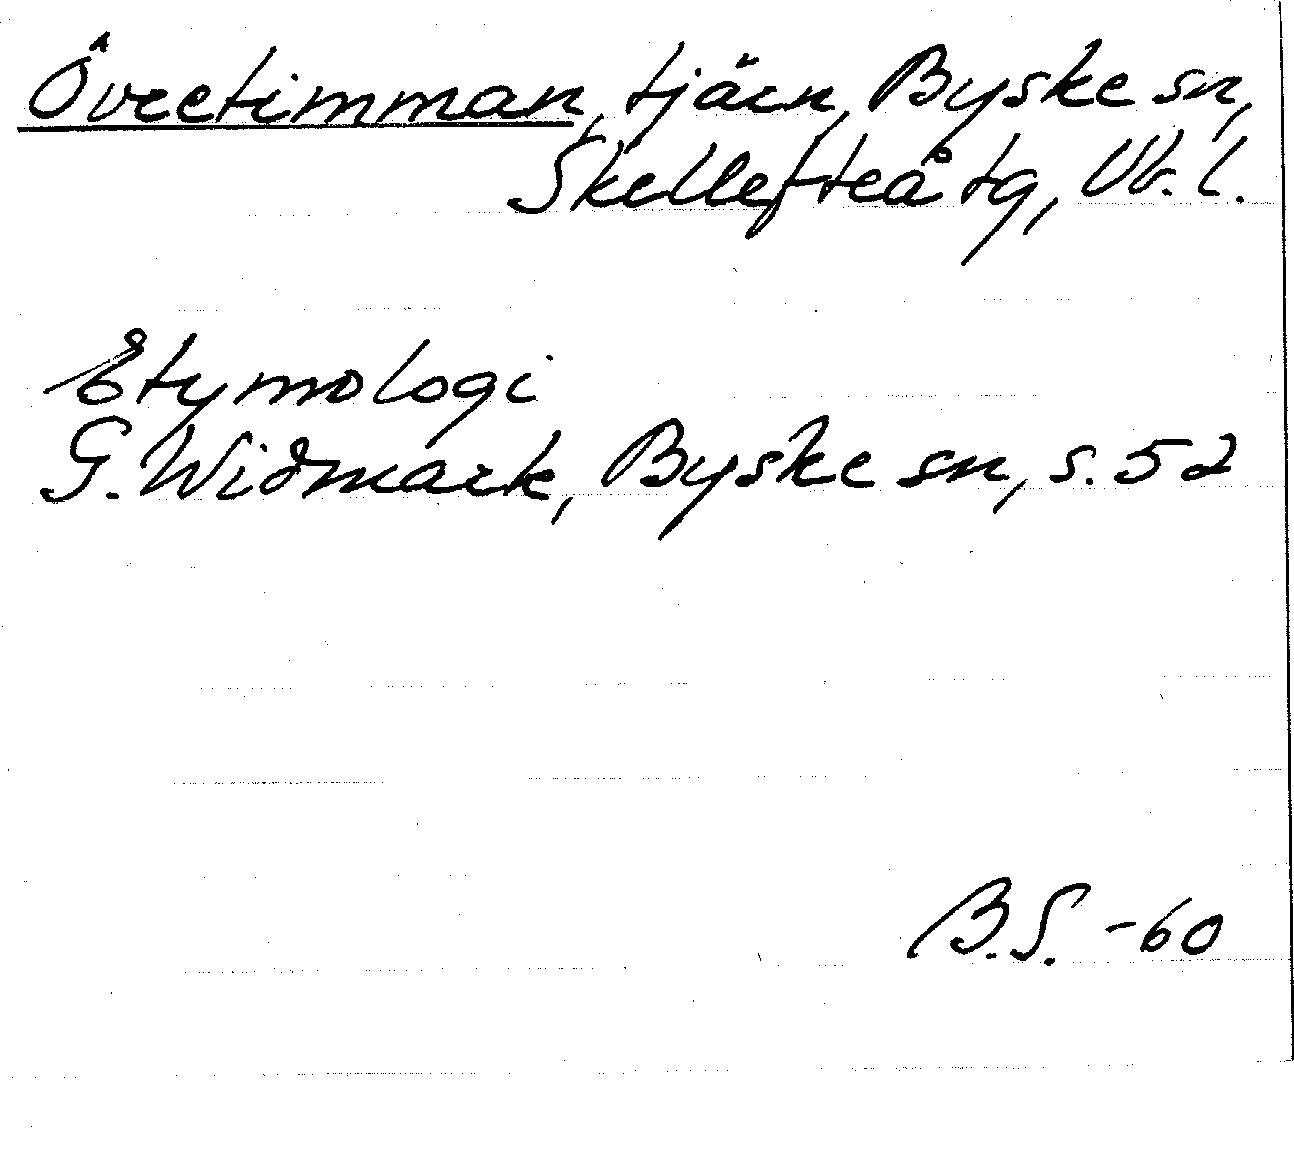 Övretimman, tjärn, Byske sn,
Skellefteå tg, Vb. l.
Etymologi
G. Widmark, Byske sn, s. 52
B.S. -60